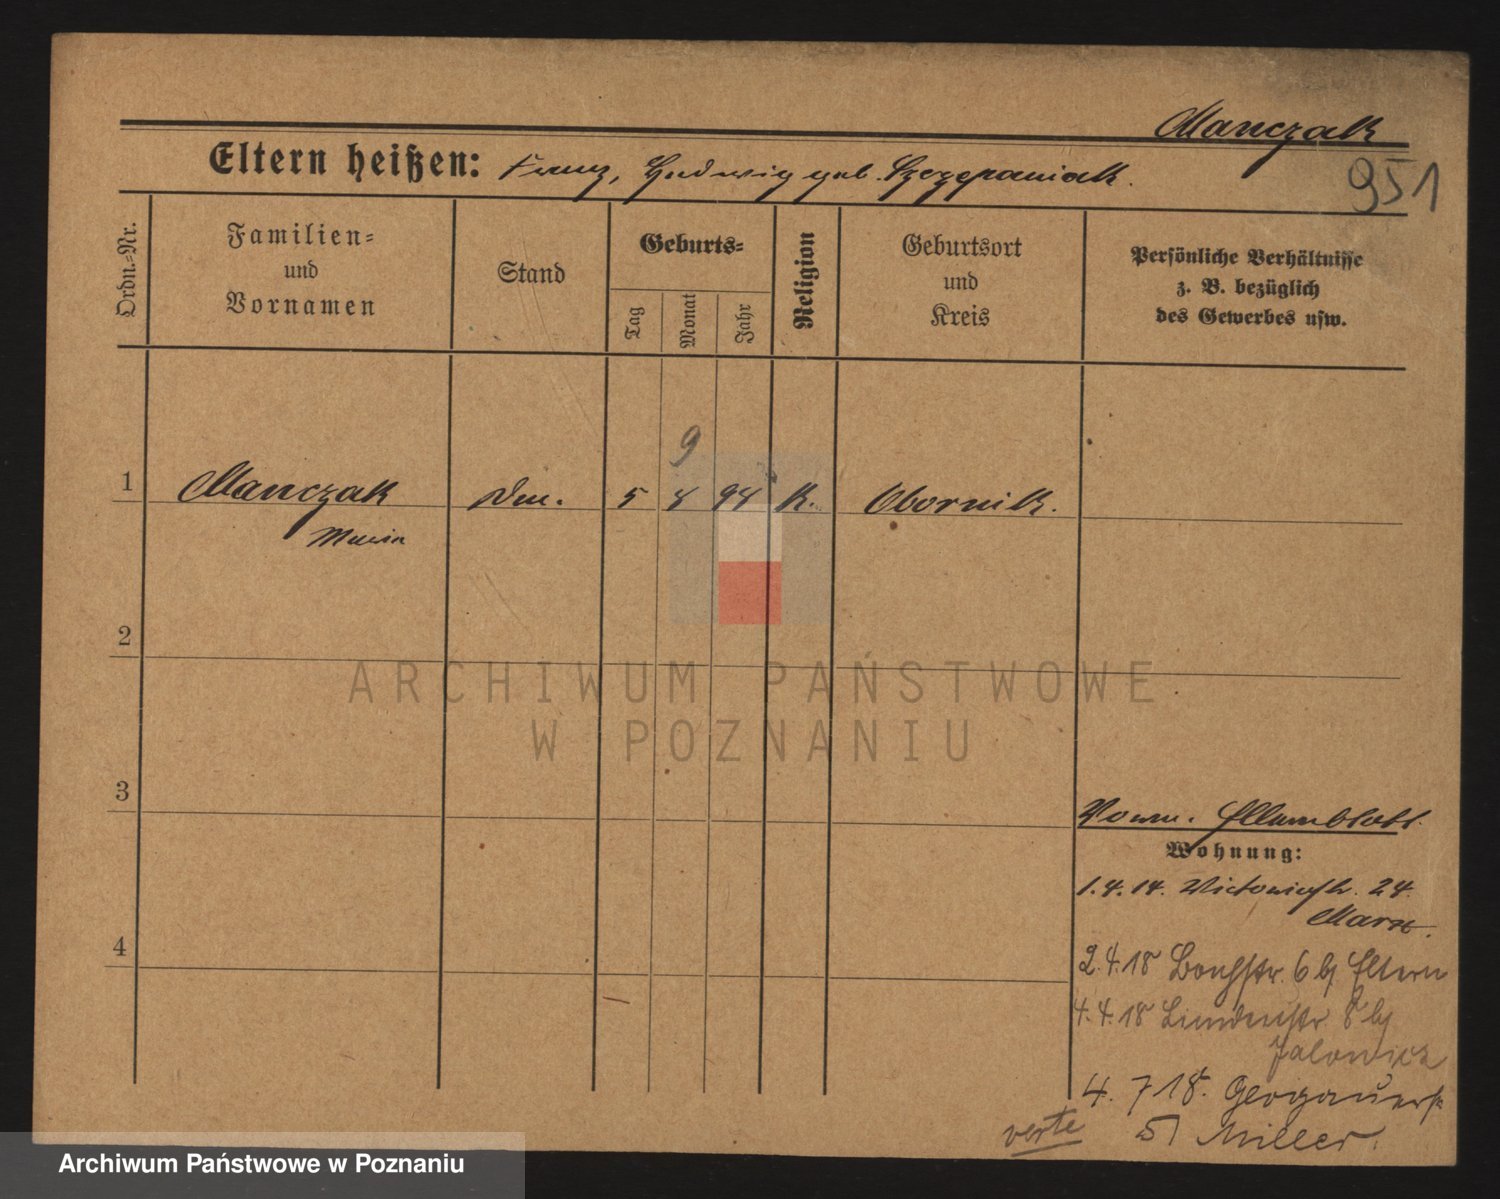 Manczak
Eltern heißen: Franz, Hedwig geb. Szczepaniak.
951
Ordn.=Nr.
Familien=
und
Vornamen
Stand
Geburts=
Tag
Monat
Jahr
Religion
Geburtsort
und
Kreis
Persönliche Verhältnisse
z. B. bezüglich
des Gewerbes usw.
9
1 Manczak 5 8 94 K. Obornik.
Maria
2
3
4
Elternblatt.
Wohnung:
1.4.14. Victoriastr. 24.
2.4.18 6 bj Eltern
4.4.18 Lindenstr 8 bj
Jalowicz
4. 7 18. Glogauerstr
51 Miller.
verte
ARCHIWUM PAŃSTWOWE
W POZNANIU
Archiwum Państwowe w Poznaniu